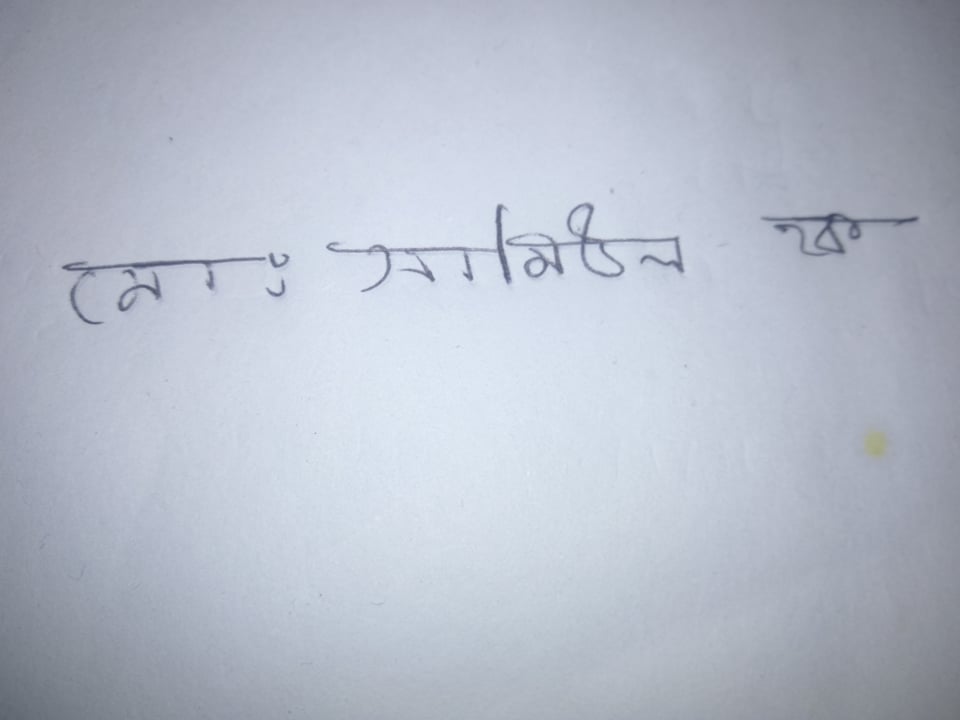 মোঃ সামিউল হক